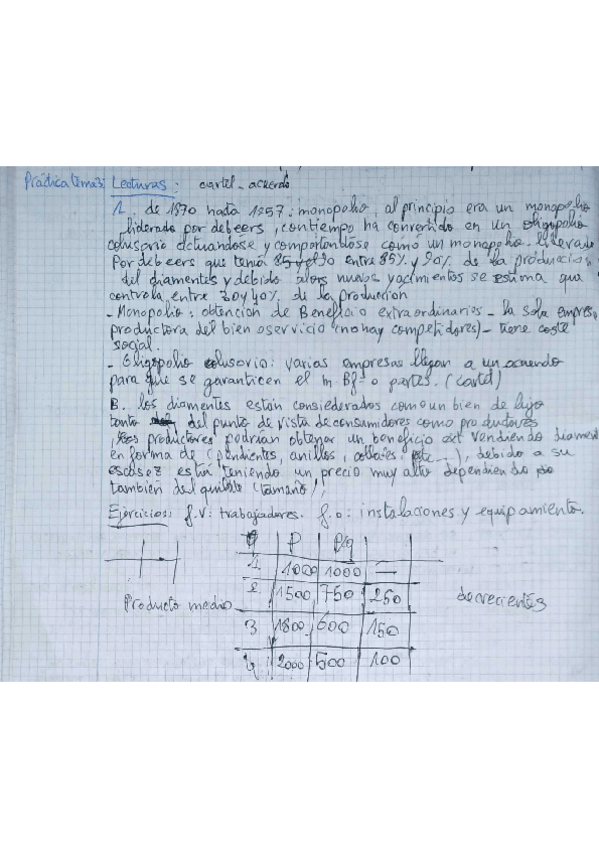 Práctica tema 3: Lecturas: cartel - acuerdo
1. de 1870 hasta 1957: monopolio, al principio era un monopolio
liderado por debeers, con tiempo ha convertido en un oligopolio
colusorio actuandose y comportandose como un monopolio. liderado
Por debeers que tenía entre 85% y 90% de la producción
del diamentes y debido a los nuevos yacimientos se estima que
controla entre 30 y 40% de la producción
- Monopolio: obtención de Beneficio extraordinarios - la sola empresa
productora del bien o servicio (no hay competidores) - tiene coste
social.
- Oligopolio colusorio: varias empresas llegan a un acuerdo
para que se garanticen el m. Bfº o partes. (cartel)
B. los diamentes están considerados como un bien de lujo
tanto del punto de vista de consumidores como productores
, los productores podrían obtener un beneficio ext vendiendo diament
en forma de (pendientes, anillos, collares etc...), debido a su
escasez está teniendo un precio muy alto dependiendo
también del quilate (tamaño),
Ejercicios: f.v: trabajadores. f.o: instalaciones y equipamiento.
P P/q
1 1000 1000 —
2 1500 750 250
Producto medio decrecientes
3 1800 600 150
4 2000 500 100